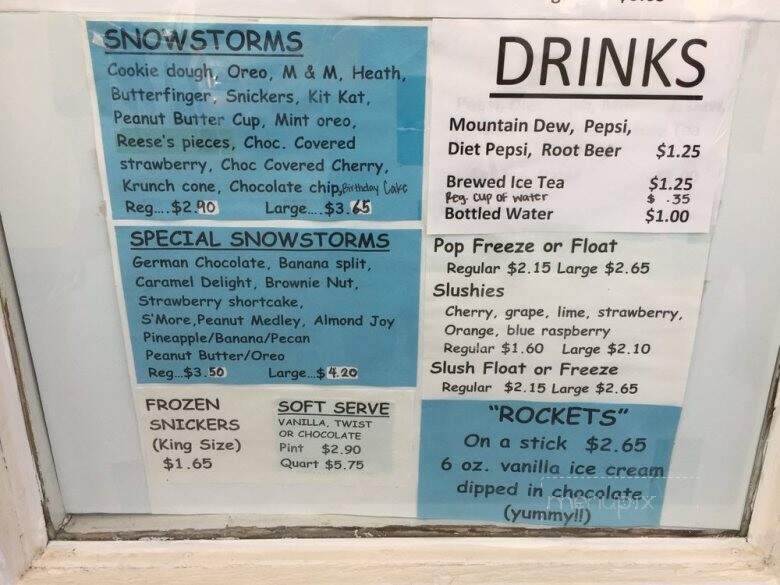 SNOWSTORMS
Cookie dough, Oreo, M & M, Heath,
Butterfinger, Snickers, Kit Kat,
Peanut Butter Cup, Mint oreo,
Reese's pieces, Choc. Covered
strawberry, Choc Covered Cherry,
Krunch cone, Chocolate chip, Birthday Cake
Reg....$2.90 Large....$3.65
SPECIAL SNOWSTORMS
German Chocolate, Banana split,
Caramel Delight, Brownie Nut,
Strawberry shortcake,
S'More,Peanut Medley, Almond Joy
Pineapple/Banana/Pecan
Peanut Butter/Oreo
Reg...$3.50 Large...$4.20
FROZEN
SNICKERS
(King Size)
$1.65
SOFT SERVE
VANILLA, TWIST
OR CHOCOLATE
Pint $2.90
Quart $5.75
DRINKS
Mountain Dew, Pepsi,
Diet Pepsi, Root Beer $1.25
Brewed Ice Tea $1.25
Reg. cup of water $ .35
Bottled Water $1.00
Pop Freeze or Float
Regular $2.15 Large $2.65
Slushies
Cherry, grape, lime, strawberry,
Orange, blue raspberry
Regular $1.60 Large $2.10
Slush Float or Freeze
Regular $2.15 Large $2.65
"ROCKETS"
On a stick $2.65
6 oz. vanilla ice cream
dipped in chocolate
(yummy!!)
menupix